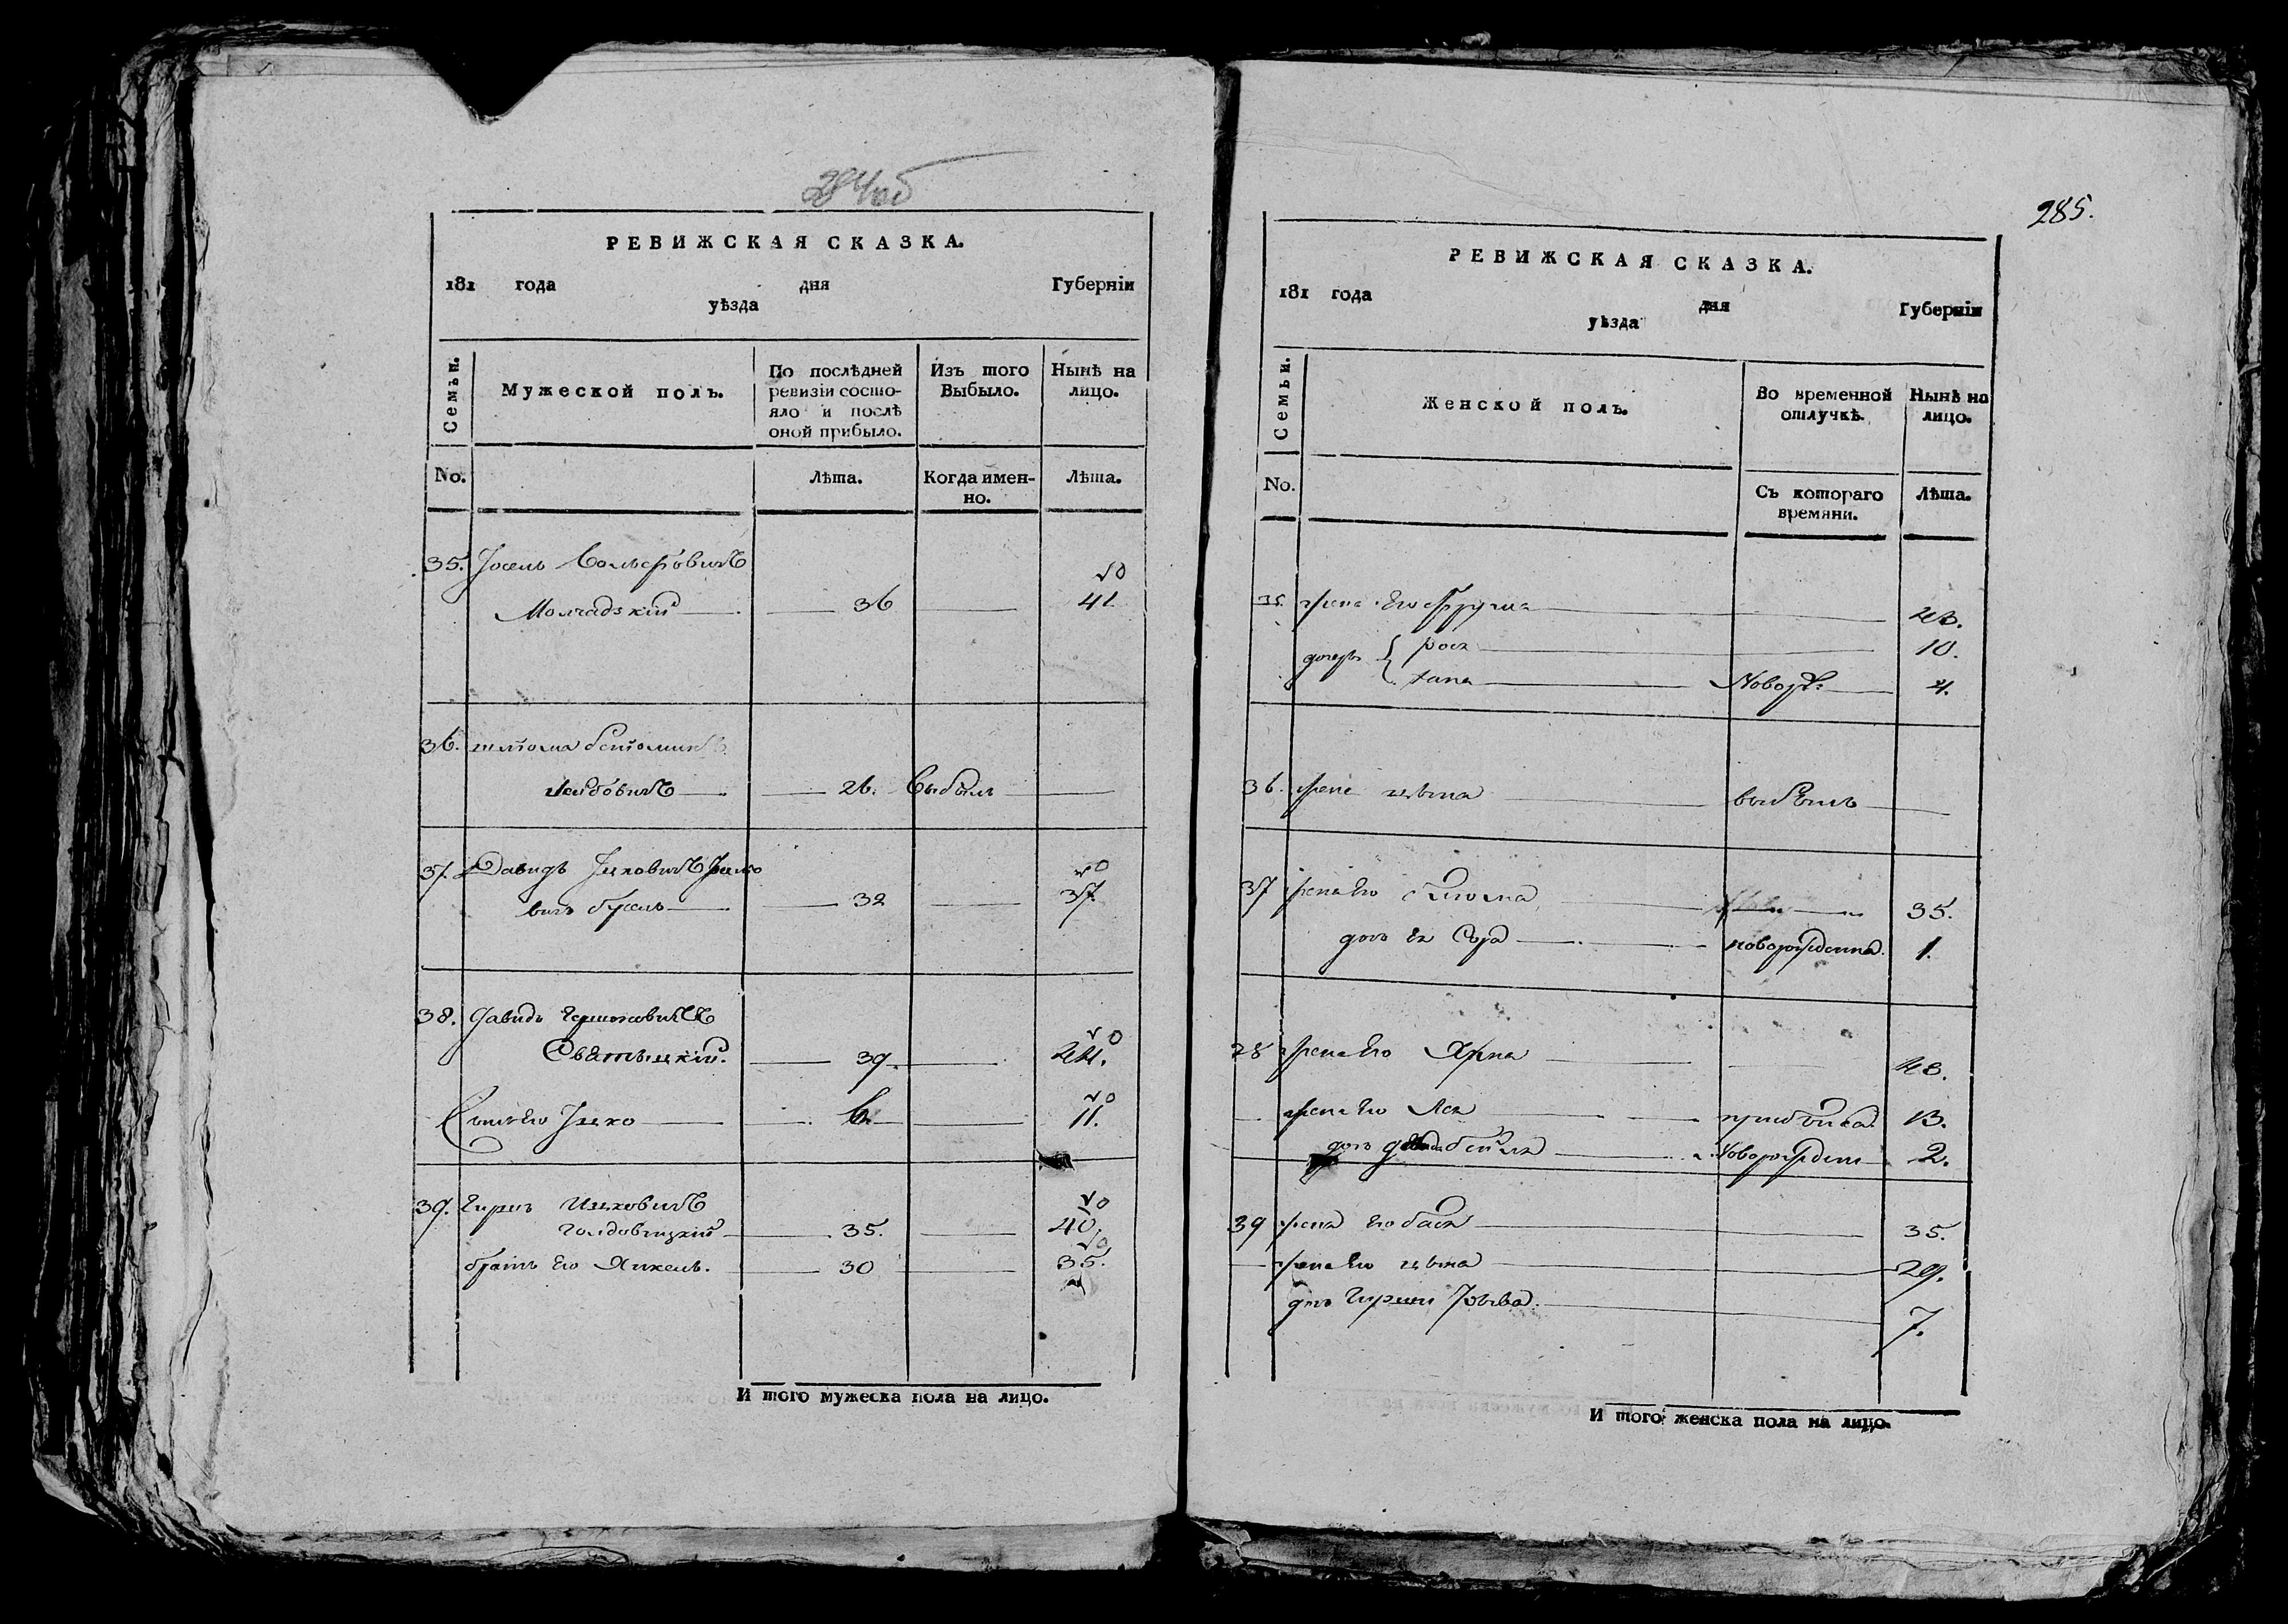 284об
РЕВИЖСКАЯ СКАЗКА.
181 года дня Губерніи
уѣзда
Семьи.
Мужеской полъ.
По послѣдней ревизіи состояло и послѣ оной прибыло.
Изъ того Выбыло.
Нынѣ на лицо.
No.
Лѣта.
Когда именно.
Лѣта.
35. Іосель Вольфовичъ
Молчадзкій 36 41
36.
26. Выбылъ
37. Давидъ Ицковичъ Ицко
вичъ 32 37
38. Давидъ Гершоновичъ
Святыцкій. 39. 44.
Сынъ Его Ицко 6 11.
39. Гиршъ Ицковичъ
35. 40.
братъ Его Янкель. 30 35.
И того мужеска пола на лицо.
285.
РЕВИЖСКАЯ СКАЗКА.
181 года дня Губерніи
уѣзда
Семьи.
Женской полъ.
Во временной отлучкѣ.
Нынѣ на лицо.
No.
Съ котораго времяни.
Лѣта.
35. жена Его Фрума
дочерь Рося 10.
Хана Новорж: 4.
36. жена Цыпа выбылъ
37 жена Его 35.
дочь Ея Сора новорожденна. 1.
жена Его
жена Его Лея прибыла. 13.
дочь новорожден 2.
39 жена Его Бася 35.
жена Его Цыпа 29.
дочь Гирши 7.
И того женска пола на лицо.